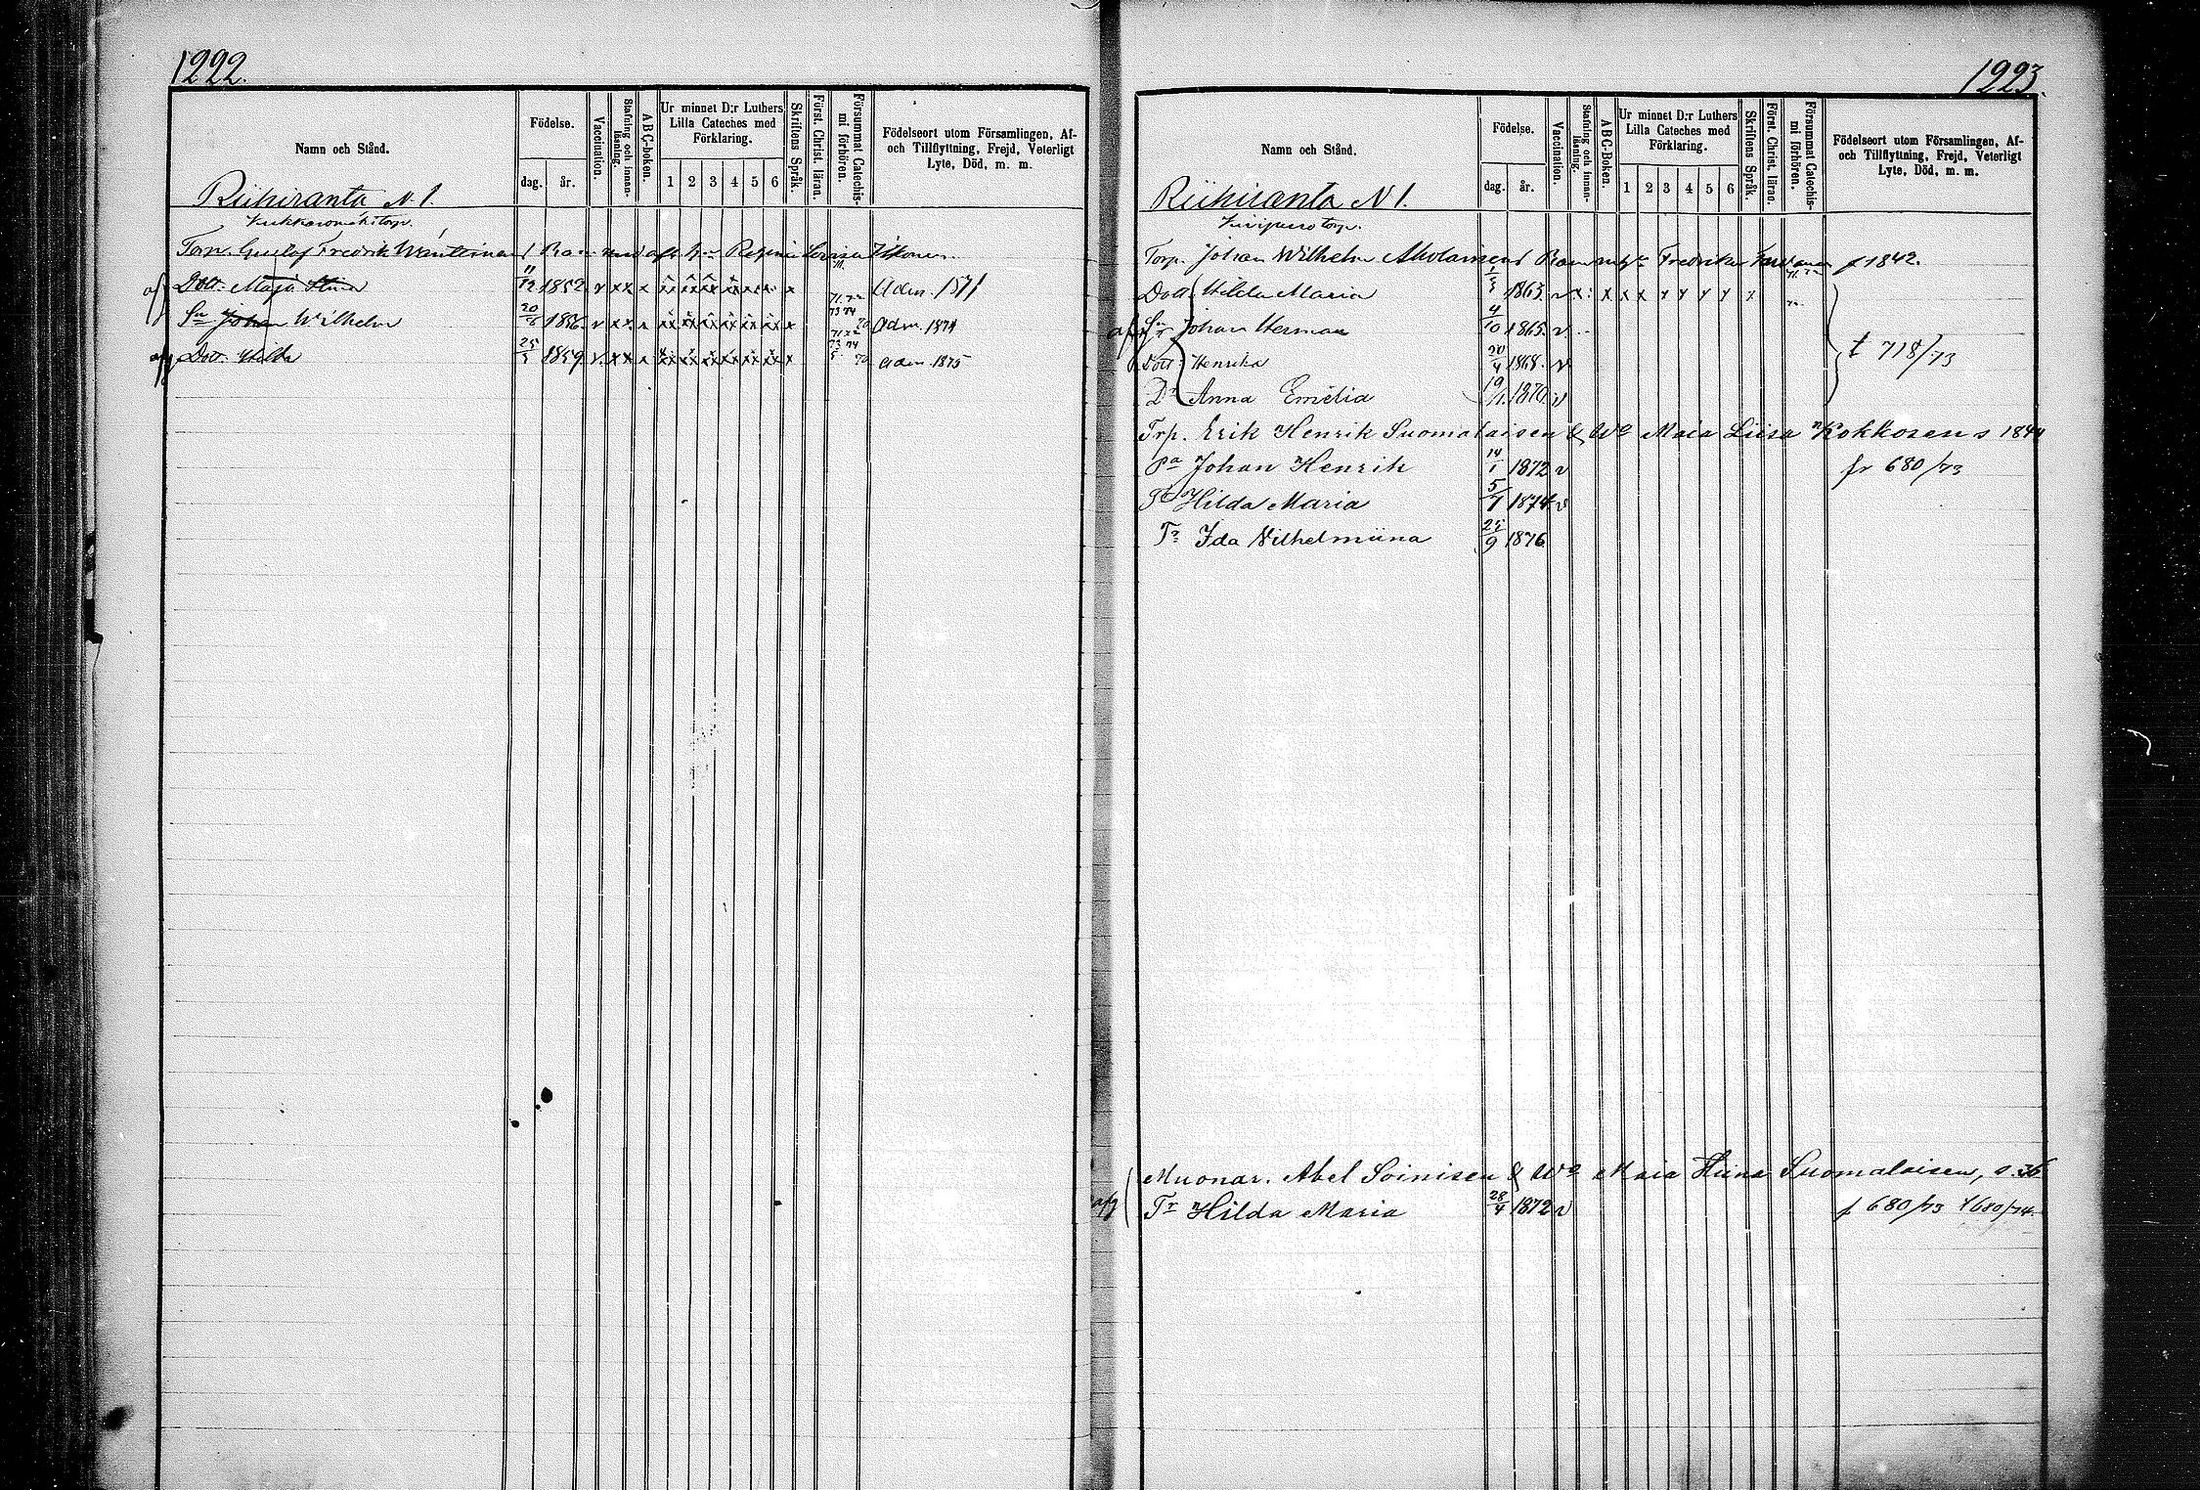 1222.
Namn och Stånd.
Födelse.
dag.
år.
Vaccination.
Stafning och innan-läsning.
A B C-boken.
Ur minnet D:r Luthers Lilla Cateches med Förklaring.
1 2 3 4 5 6
Skriftens Språk.
Först. Christ. läran.
Försummat Catechis-mi förhören.
Födelseort utom Församlingen, Af- och Tillflyttning, Frejd, Veterligt Lyte, Död, m. m.
Riihiranta N 1.
Torp. Gustaf Fredrik Barn med afl. Regina Lovisa
Dott. Maja Stina 11/12 1852 v xx x x Adm. 1871
Sn Johan Wilhelm 20/6 1856 v xx x Adm. 1874
afg Dott. Hilda 25/3 1859 v xx x x adm. 1875
1223.
Namn och Stånd.
Födelse.
dag.
år.
Vaccination.
Stafning och innan-läsning.
A B C-Boken.
Ur minnet D:r Luthers Lilla Cateches med Förklaring.
1 2 3 4 5 6
Skriftens Språk.
Först. Christ. läran.
Försummat Catechis-mi förhören.
Födelseort utom Församlingen, Af- och Tillflyttning, Frejd, Veterligt Lyte, Död, m. m.
Riihiranta N 1.
Torp. Johan Wilhelm Aholainens Barn Fredrika f 1842.
Dott. Hilda Maria 1863 v x x x x x x x x
afg Sn Johan Herman 4/10 1865 v
Dott Henrika 20/4 1868 v
Dr Anna Emelia 1870 v
t 718/73
Trp. Erik Henrik Suomalaisen & Wo Maia Liisa Kokkosen s 1844
Pa Johan Henrik 14/1 1872 v fr 680/73
Tr Hilda Maria 5/7 1874 v
Tr Ida Wilhelmiina 25/9 1876
Muonar. Abel Soinisen & Wo Maia Stiina Suomalaisen, s. 36
afg Tr Hilda Maria 28/4 1872 v f 680/73 t 680/74